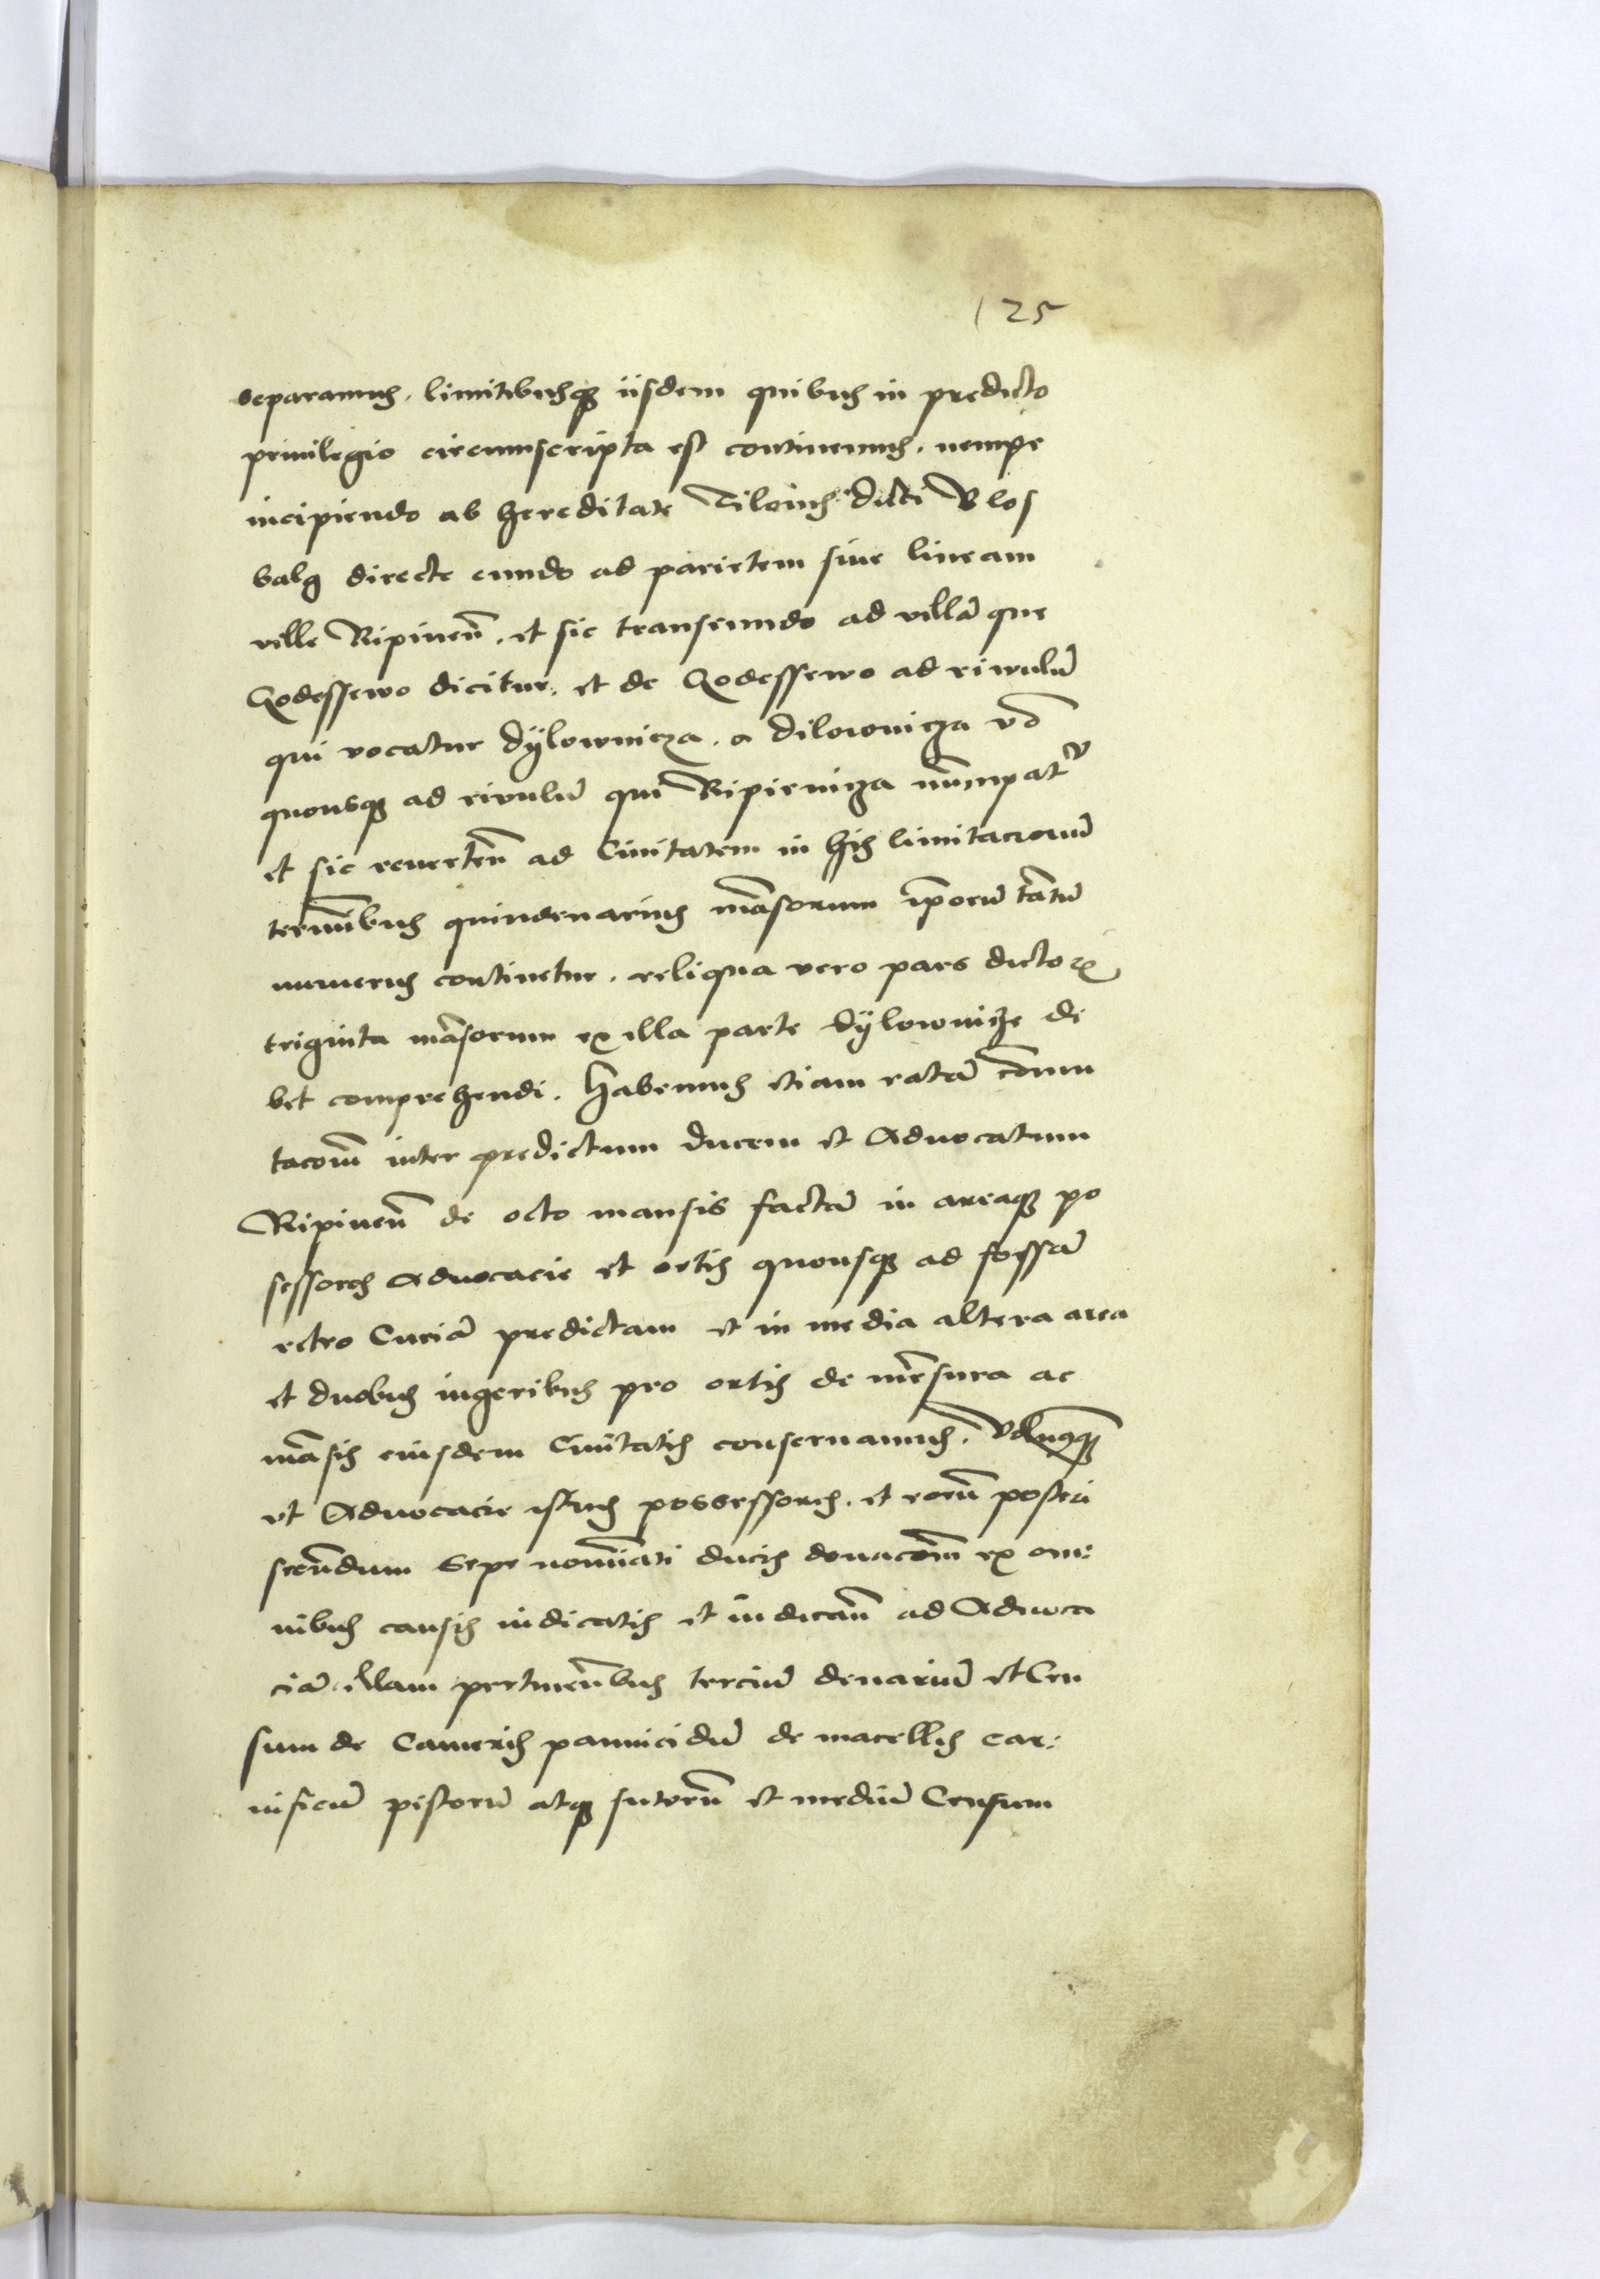 125
separamus. limitibusq3 iisdem quibus in predicto
priuilegio circumscripta est continemus. nempe
incipiendo ab hereditate Tilonis dicti Vlos
balg directe eundo ad parietem siue lineam
ville Ripinen̄. et sic transeundo ad villā que
Godessewo dicitur. et de Godessewo ad riwulū
qui vocatur Dÿlownicza. a Dilownicza vō
quousq3 ad riuulū qui Ripienicza nūncpatr
et sic reuerten̄ ad Ciuitatem in his limitacionū
terminībus quindenarius māsorum ip̄orū tātū
numerus continetur. reliqua vero pars dictoꝝ
triginta māsorum ex illa parte Dÿlownicze de
bet comprehendi. Habemus etiam ratā cōmu
tacōm̄ inter predictum ducem et Aduocatum
Ripinen̄ de octo mansis factā in areaq3 po
sessores Aduocacie et ortis quousq3 ad fossā
retro Curiā predictam et in media altera area
et duobus iugeribus pro ortis de mēsura ac
māsis eiusdem Ciuitatis conseruamus.
vt Aduocacie istius possessores. et eorū posteri
secūndum sepe nomīati ducis donacōm̄ ex om:
nibus causis iudicatis et iudican̄ ad Aduoca
ciā illam pertinen̄bus terciū denariū et Cen
sum de Cameris pannicidū de macellis car:
nificū pistorū atq3 sutorū et mediū Censum